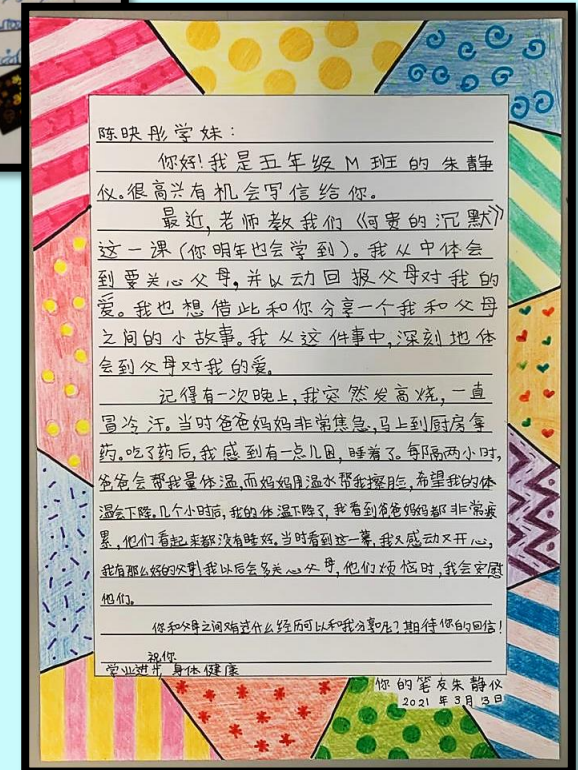 陈映彤学妹：
你好！我是五年级M班的朱静
仪。很高兴有机会写信给你。
最近，老师教我们《可贵的沉默》
这一课（你明年也会学到）。我从中体会
到要关心父母，并以动回报父母对我的
爱。我也想借此和你分享一个我和父母
之间的小故事。我从这件事中，深刻地体
会到父母对我的爱。
记得有一次晚上，我突然发高烧，一直
冒冷汗。当时爸爸妈妈非常焦急，马上到厨房拿
药。吃了药后，我感到有一点儿困，睡着了。每隔两小时，
爸爸会帮我量体温，而妈妈用温水帮我擦脸，希望我的体
温会下降。几个小时后，我的体温下降了，我看到爸爸妈妈都非常疲
累，他们看起来都没有睡好。当时看到这一幕，我又感动又开心，
我有那么好的父母！我以后会多关心父母，他们烦恼时，我会安慰
他们。
你和父母之间又有过什么经历可以和我分享呢？期待你的回信！
祝你
学业进步 身体健康
你的笔友朱静仪
2021年3月3日